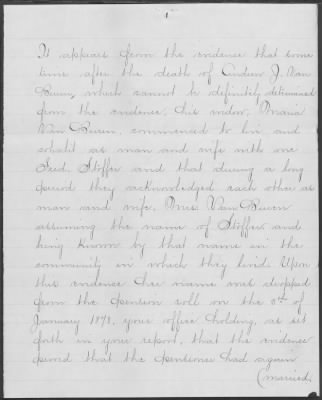 1
It appears from the evidence that some
time after the death of Andrew J. Van
Buren, which cannot be definitely determined
from the evidence, his widow, Maria
Van Buren, commenced to live and
cohabit as man and wife with one
Fred. Stoffer and that during a long
period they acknowledged each other as
man and wife, Mrs. Van Buren
assuming the name of Stoffer and
being known by that name in the
community in which they lived. Upon
this evidence her name was dropped
from the pension roll on the of
January 1898, your office holding, as set
forth in your report, that the evidence
proved that the pensioner had again
(married